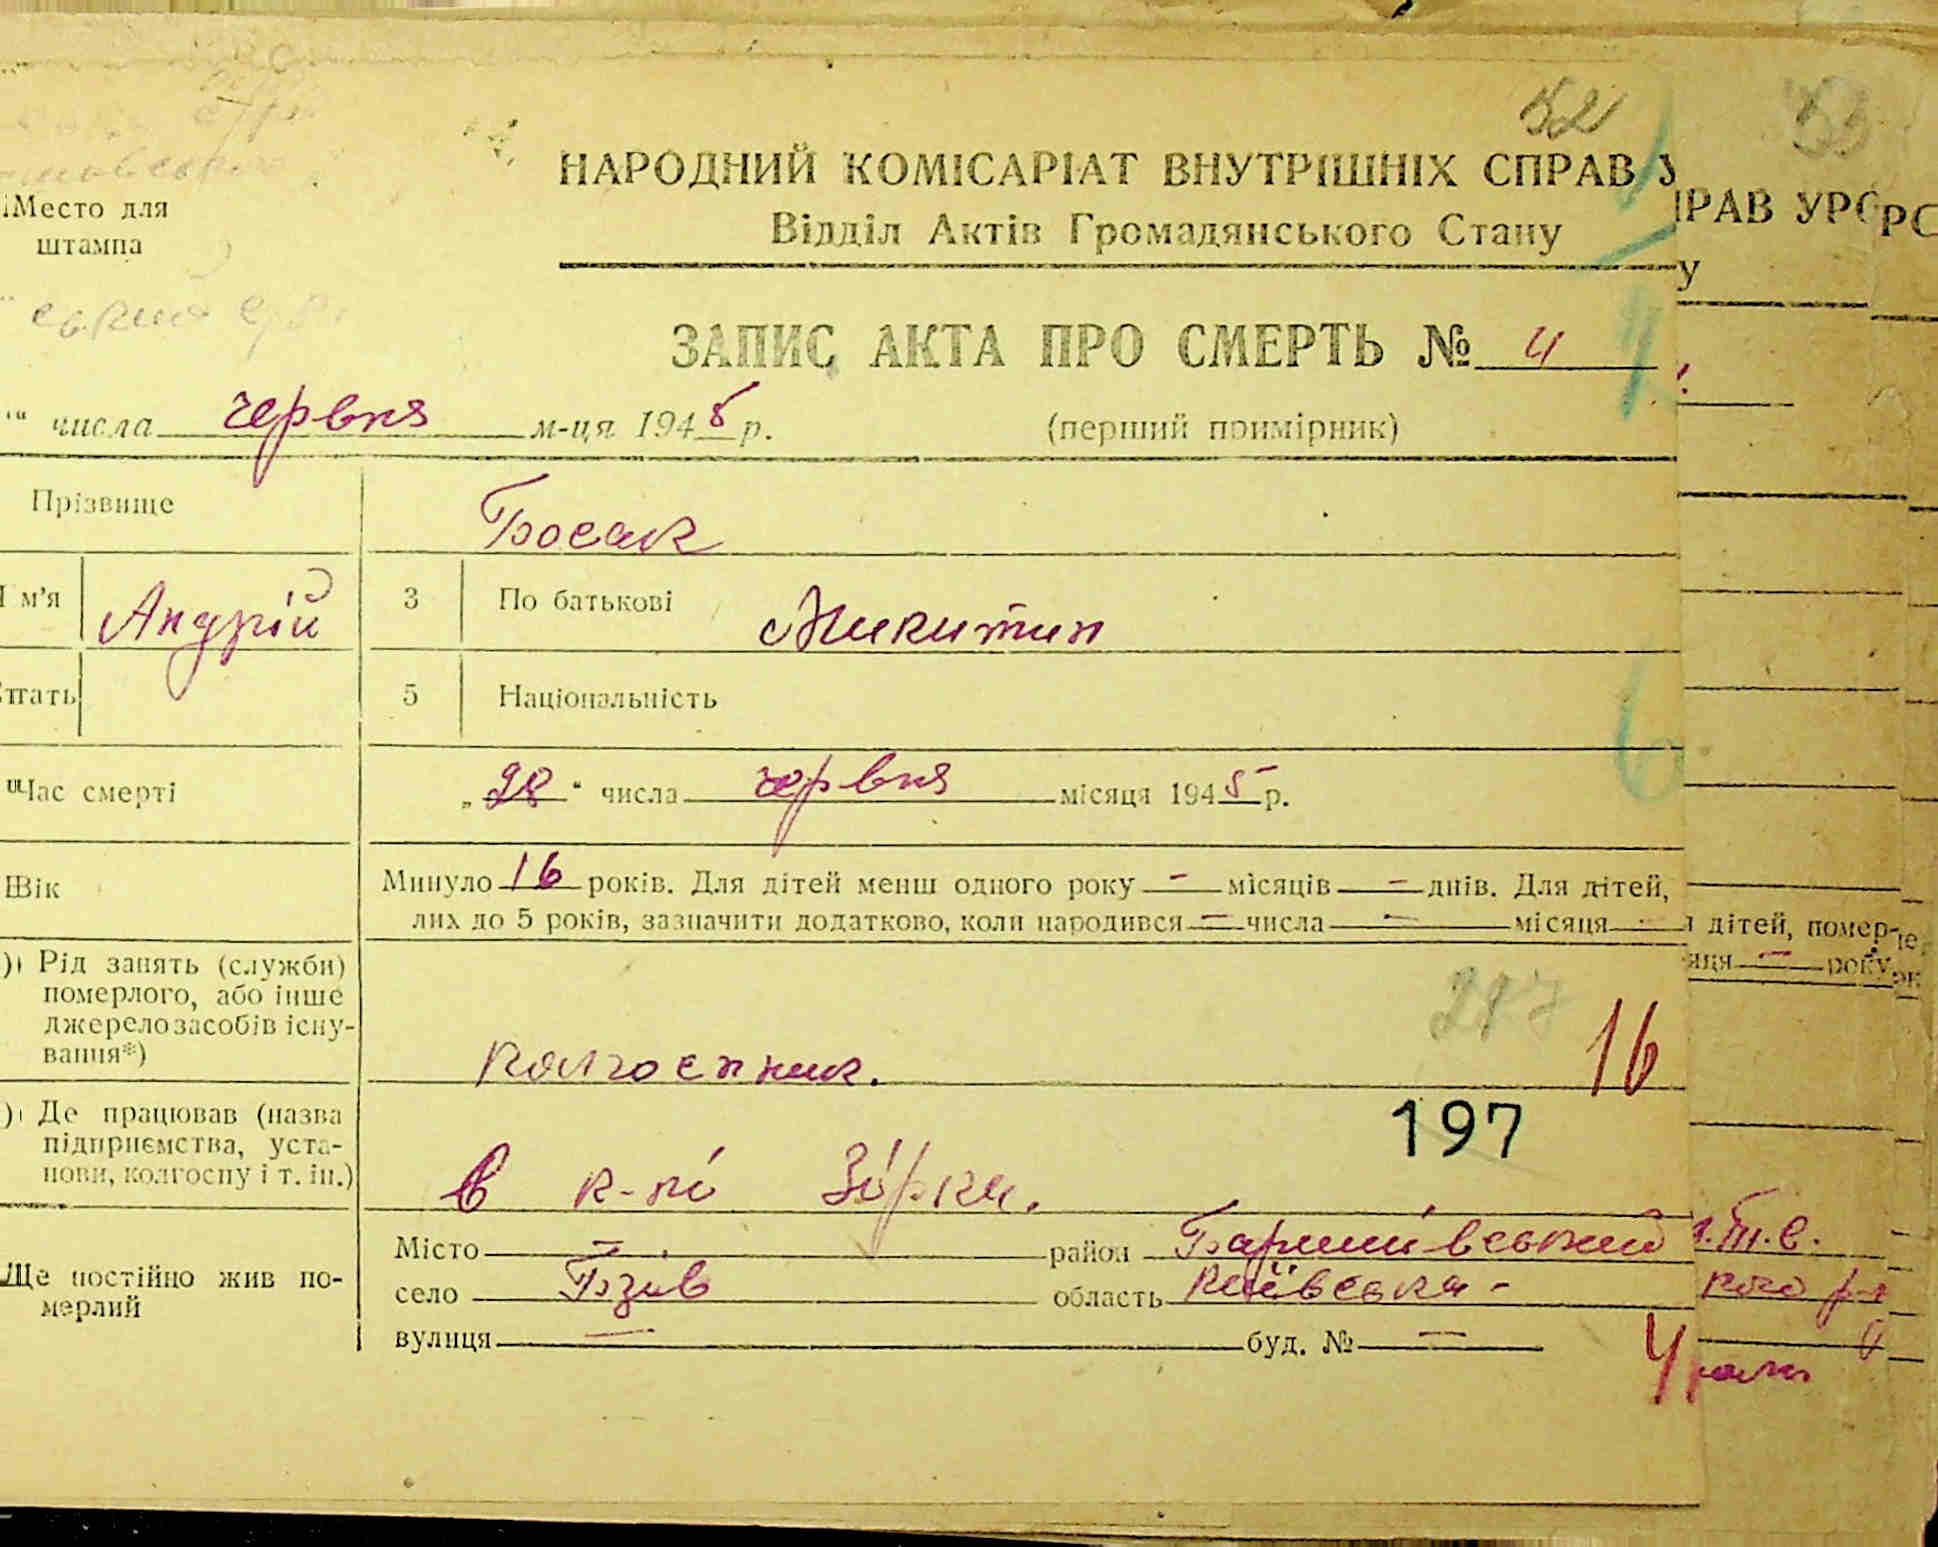 52
НАРОДНИЙ КОМІСАРІАТ ВНУТРІШНІХ СПРАВ У
РАВ УРС
РС
Место для
штампа
Відділ Актів Громадянського Стану
у
ЗАПИС АКТА ПРО СМЕРТЬ № 4
числа червня м-ця 1945 р. (перший примірник)
Прізвище Босак
м'я Андрій 3 По батькові Микитин
тать 5 Національність
Час смерті „28“ числа червня місяця 1945 р.
Вік Минуло 16 років. Для дітей менш одного року — місяців — днів. Для дітей,
лих до 5 років, зазначити додатково, коли народився — числа — місяця —
дітей, помер-
яця — року
Рід занять (служби)
померлого, або інше
джерело засобів існу-
вання*)
колгоспник.
287
16
197
Де працював (назва
підприємства, уста-
нови, колгоспу і т. ін.)
в к-пі Зірки.
Ще постійно жив по-
мерлий
Місто — район Баришівський
село Бзів область Київська -
вулиця — буд. № —
4